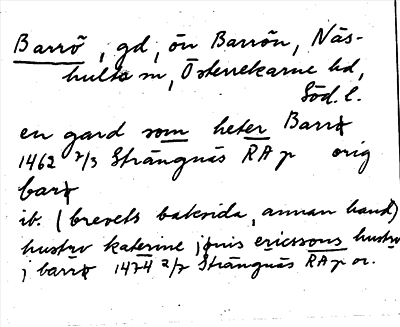 Barrö, gd, ön Barrön, Näs-
hulta sn, Österrekarne hd,
Söd. l.
en gard som heter Barrø
1462 2/3 Strängnäs RA p orig
barø
ib. (brevets baksida, annan hand)
hustrv katerine jønis ericssons hustrv
j barrø 1474 2/7 Strängnäs RA p or.